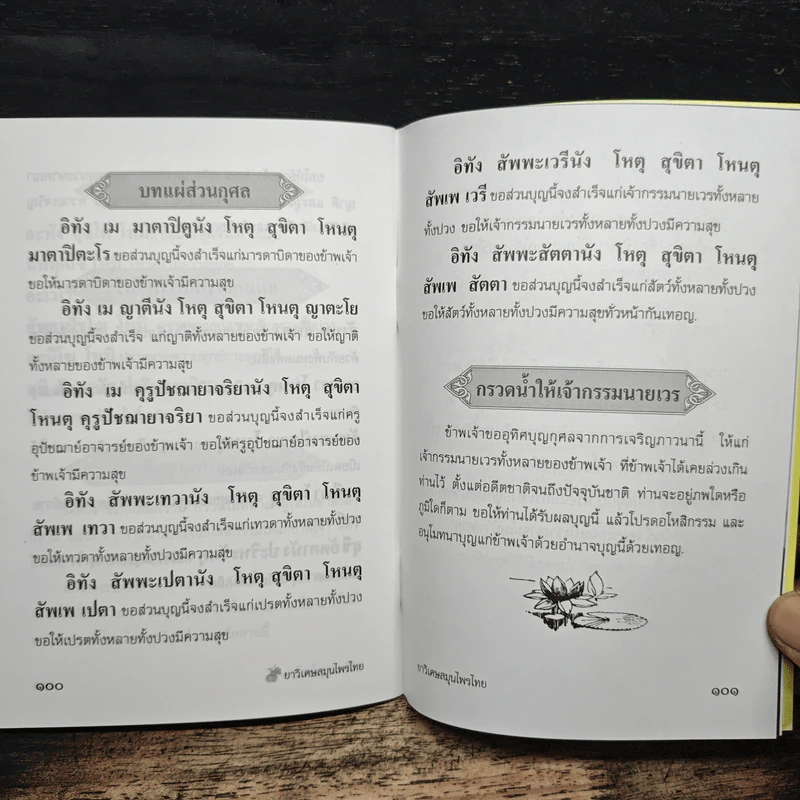 บทแผ่ส่วนกุศล
อิทัง เม มาตาปิตูนัง โหตุ สุขิตา โหนตุ
มาตาปิตะโร ขอส่วนบุญนี้จงสำเร็จแก่มารดาบิดาของข้าพเจ้า
ขอให้มารดาบิดาของข้าพเจ้ามีความสุข
อิทัง เม ญาตีนัง โหตุ สุขิตา โหนตุ ญาตะโย
ขอส่วนบุญนี้จงสำเร็จ แก่ญาติทั้งหลายของข้าพเจ้า ขอให้ญาติ
ทั้งหลายของข้าพเจ้ามีความสุข
อิทัง เม คุรูปัชฌายาจริยานัง โหตุ สุขิตา
โหนตุ คุรูปัชฌายาจริยา ขอส่วนบุญนี้จงสำเร็จแก่ครู
อุปัชฌาย์อาจารย์ของข้าพเจ้า ขอให้ครูอุปัชฌาย์อาจารย์ของ
ข้าพเจ้ามีความสุข
อิทัง สัพพะเทวานัง โหตุ สุขิตา โหนตุ
สัพเพ เทวา ขอส่วนบุญนี้จงสำเร็จแก่เทวดาทั้งหลายทั้งปวง
ขอให้เทวดาทั้งหลายทั้งปวงมีความสุข
อิทัง สัพพะเปตานัง โหตุ สุขิตา โหนตุ
สัพเพ เปตา ขอส่วนบุญนี้จงสำเร็จแก่เปรตทั้งหลายทั้งปวง
ขอให้เปรตทั้งหลายทั้งปวงมีความสุข
ยาวิเศษสมุนไพรไทย
๑๐๐
อิทัง สัพพะเวรีนัง โหตุ สุขิตา โหนตุ
สัพเพ เวรี ขอส่วนบุญนี้จงสำเร็จแก่เจ้ากรรมนายเวรทั้งหลาย
ทั้งปวง ขอให้เจ้ากรรมนายเวรทั้งหลายทั้งปวงมีความสุข
อิทัง สัพพะสัตตานัง โหตุ สุขิตา โหนตุ
สัพเพ สัตตา ขอส่วนบุญนี้จงสำเร็จแก่สัตว์ทั้งหลายทั้งปวง
ขอให้สัตว์ทั้งหลายทั้งปวงมีความสุขทั่วหน้ากันเทอญ.
กรวดน้ำให้เจ้ากรรมนายเวร
ข้าพเจ้าขออุทิศบุญกุศลจากการเจริญภาวนานี้ ให้แก่
เจ้ากรรมนายเวรทั้งหลายของข้าพเจ้า ที่ข้าพเจ้าได้เคยล่วงเกิน
ท่านไว้ ตั้งแต่อดีตชาติจนถึงปัจจุบันชาติ ท่านจะอยู่ภพใดหรือ
ภูมิใดก็ตาม ขอให้ท่านได้รับผลบุญนี้ แล้วโปรดอโหสิกรรม และ
อนุโมทนาบุญแก่ข้าพเจ้าด้วยอำนาจบุญนี้ด้วยเทอญ.
ยาวิเศษสมุนไพรไทย
๑๐๑